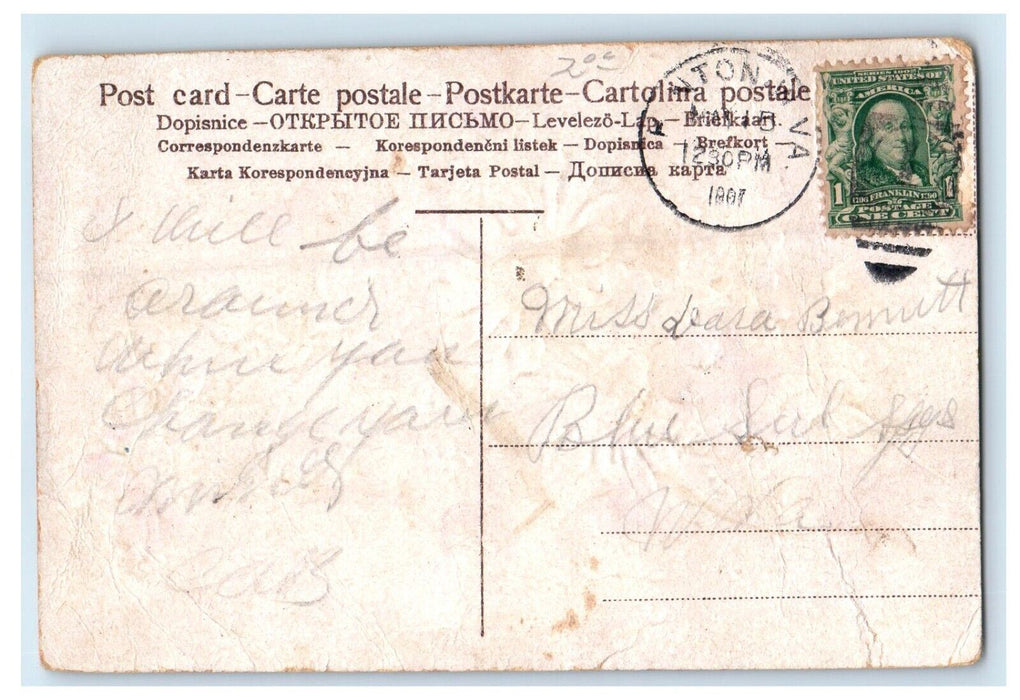 2⁰⁰
Post card – Carte postale – Postkarte – Cartolina postale
Dopisnice – ОТКРЫТОЕ ПИСЬМО – Levelező-Lap – Briefkaart.
Correspondenzkarte – Korespondenčni listek – Dopisnica – Brefkort –
Karta Korespondencyjna – Tarjeta Postal – Дописна карта
INTON, W. VA.
15
1230PM
1907
SERIES 1902
UNITED STATES OF
AMERICA
1 FRANKLIN
POSTAGE
ONE CENT
I will be
around
when you
change your
mind
CAB
Miss Bennett
Blue Sul Spgs
W Va